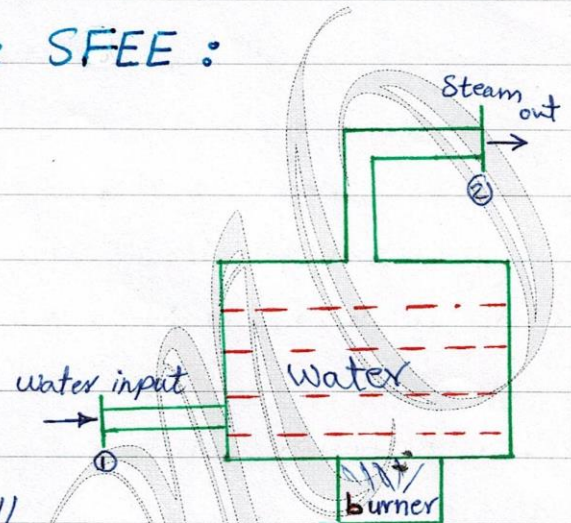 SFEE :
Steam
out
②
Water
water input
①
burner